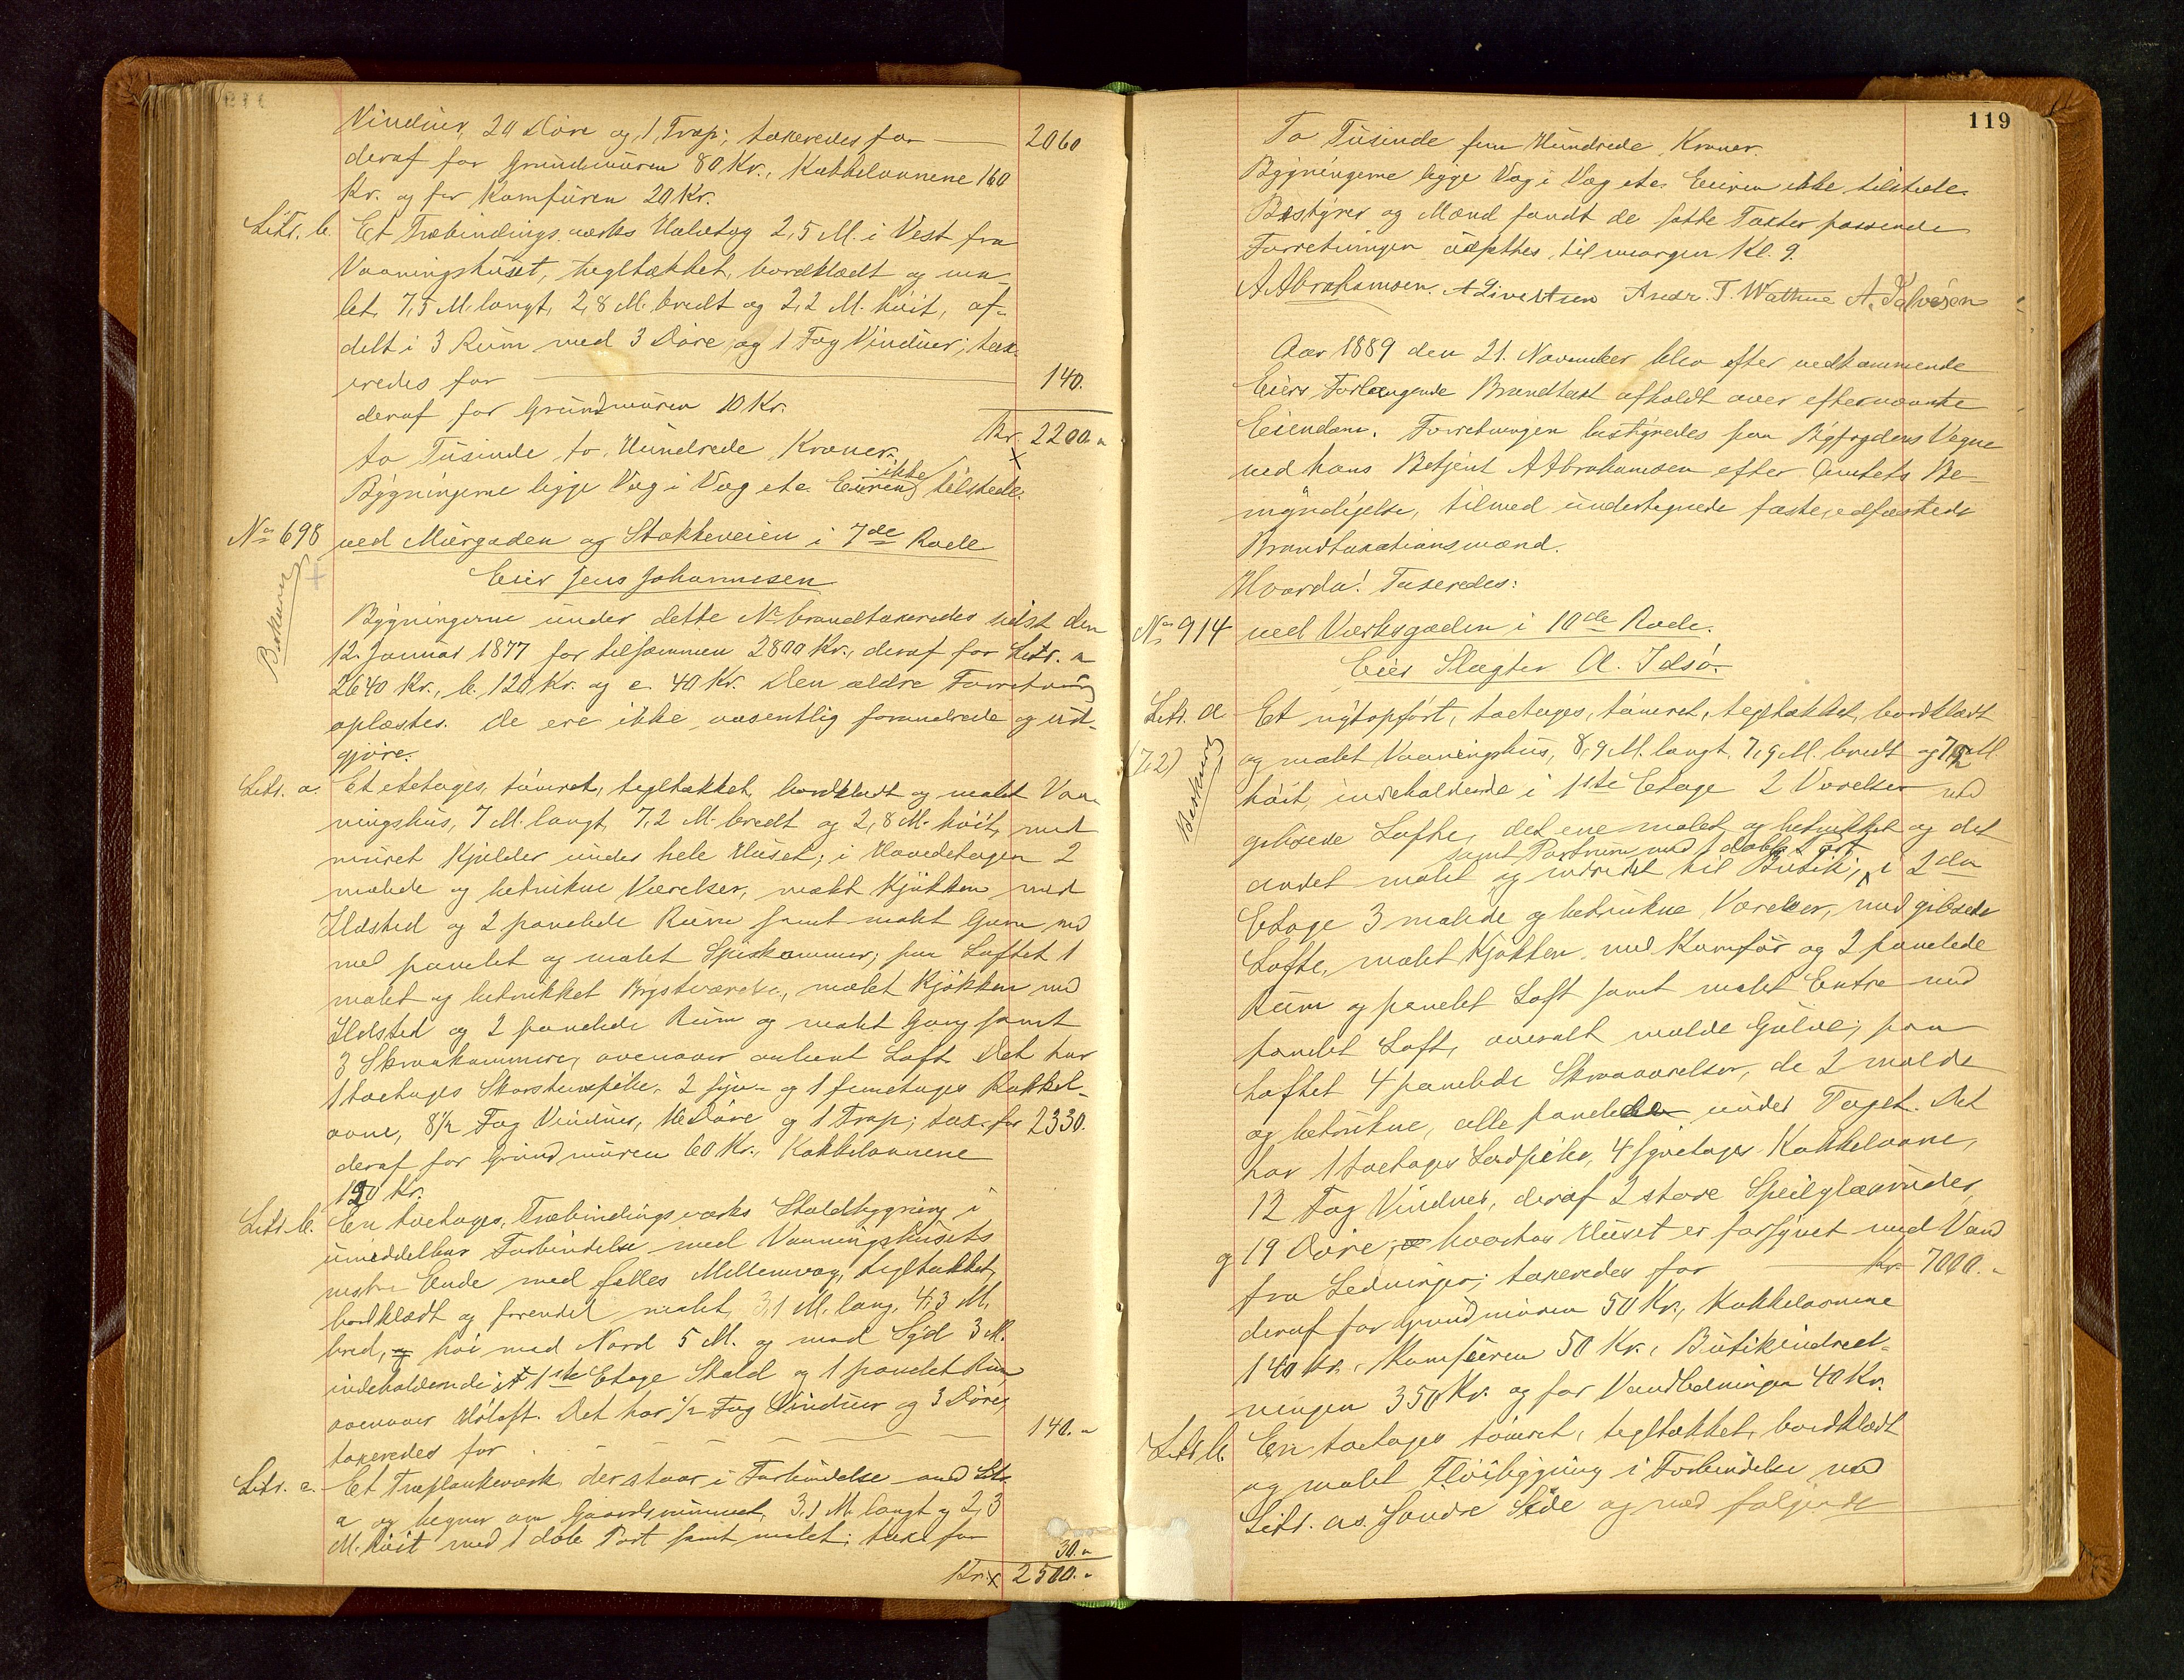 Vinduer, 20 Døre og 1 Trap; taxeredes for 2060
deraf for Grundmuren 80 Kr., Kakkelovnene 160
Kr. og for Komfuren 20 Kr.
Litr. b. Et Træbindingsværks Halvtag 2,5 M. i Vest fra
Vaaningshuset, tegltækket, bordklædt og ma-
let, 7,5 M. langt, 2,8 M. bredt og 2,2 M. høit, af-
delt i 3 Rum med 3 Døre og 1 Fag Vinduer; tax-
eredes for 140.
deraf for Grundmuren 10 Kr.
Kr. 2200.
to Tusinde to Hundrede Kroner.
Bygningerne ligge Væg i Væg etc. Eieren ikke tilstede.
No 698 ved Murgaden og Stokkeveien i 7de Rode
Eier Jens Johannesen
Bygningerne under dette No brandtaxeredes sidst den
12. Januar 1877 for tilsammen 2800 Kr., deraf for Litr. a
2640 Kr., b. 120 Kr. og c. 40 Kr. Den ældre Forretning
oplæstes. De ere ikke væsentlig forandrede og ud-
gjøre:
Litr. a. Et etetages, tømret, tegltækket, bordklædt og malet Vaa-
ningshus, 7 M. langt, 7,2 M. bredt og 2,8 M. høit, med
muret Kjælder under hele Huset; i Hovedetagen 2
malede og betrukne Værelser, malet Kjøkken med
Ildsted og 2 panelede Rum samt malet Gang med
med panelet og malet Spiskammer; paa Loftet 1
malet og betrukket Kvistværelse, malet Kjøkken med
Ildsted og 2 panelede Rum og malet Gang samt
3 Skraakammere, ovenover Loft. Det har
1 toetages Skorstenspibe, 2 fire- og 1 femetages Kakkel-
ovne, 8½ Fag Vinduer, Døre og 1 Trap; tax. for 2330.
deraf for Grundmuren 60 Kr., Kakkelovnene
120 Kr.
Litr. b. En toetages, Træbindingsværks Staldbygning i
umiddelbar Forbindelse med Vaaningshusets
Ende med fælles Mellemvæg, tegltækket,
bordklædt og forendel malet, 3,1 M. lang, 4,3 M.
bred, høi mod Nord 5 M. og mod Syd 3 M.
indeholdende i 1ste Etage Stald og 1 panelet Rum
ovenover Høloft. Det har ½ Fag Vinduer og 3 Døre,
taxeredes for 140.
Litr. c. Et Træplankeværk, der staar i Forbindelse med Litr.
a og hegner om Gaardsrummet, 3,1 M. langt og 2,3
M. høit med 1 dob. Port samt malet; tax. for
30.
Kr. 2500.
119
To Tusinde fem Hundrede Kroner.
Bygningerne ligge Væg i Væg etc. Eieren ikke tilstede.
Bestyrer og Mænd fandt de satte Taxter passende
Forretningen udsættes til imorgen Kl. 9.
A Abrahamsen. A Sivertsen Andr. T. Wathne A. Salvesen
Aar 1889 den 21. November blev efter vedkommende
Eiers Forlangende Brandtaxt afholdt over efternævnte
Eiendom. Forretningen bestyredes paa Byfogdens Vegne
ved hans Betjent A Abrahamsen efter Amtets Be-
myndigelse, tilmed undertegnede faste, edfæstede
Brandtaxationsmænd.
Hvorda! Taxeredes:
No 914 ved Verksgaden i 10de Rode.
Eier Slagter A. Idsø.
Litr. a Et nytopført, toetages, tømret, tegltækket, bordklædt
(7,2) og malet Vaaningshus, 8,9 M. langt, 7,9 M. bredt og 7,2 M
høit, indeholdende i 1ste Etage 2 Værelser med
gibsede Lofte, det ene malet og betrukket og det
samt Portrum med 1 dobbelt Port
andet malet og indredet til Butik; i 2den
Etage 3 malede og betrukne Værelser, med gibsede
Lofte, malet Kjøkken med Komfur og 2 panelede
Rum og panelet Loft samt malet Entre med
panelet Loft, overalt malede Gulve; paa
Loftet 4 panelede Skraaværelser, de 2 malede
og betrukne, alle panelede under Taget. Det
har 1 toetages Lodpibe, 4 fyretages Kakkelovne,
12 Fag Vinduer, deraf 2 store Speilglasruder,
og 19 Døre, hvorhos Huset er forsynet med Vand
fra Ledningen; taxeredes for Kr. 7000.
deraf for Grundmuren 50 Kr., Kakkelovnene
140 Kr., Komfuren 50 Kr., Butikindred-
ningen 350 Kr. og for Vandledningen 40 Kr.
Litr. b. En toetages tømret, tegltækket, bordklædt
og malet Fløibygning i Forbindelse med
Litr. as. søndre Side og med følgende
Beskaaren
Beskaaren